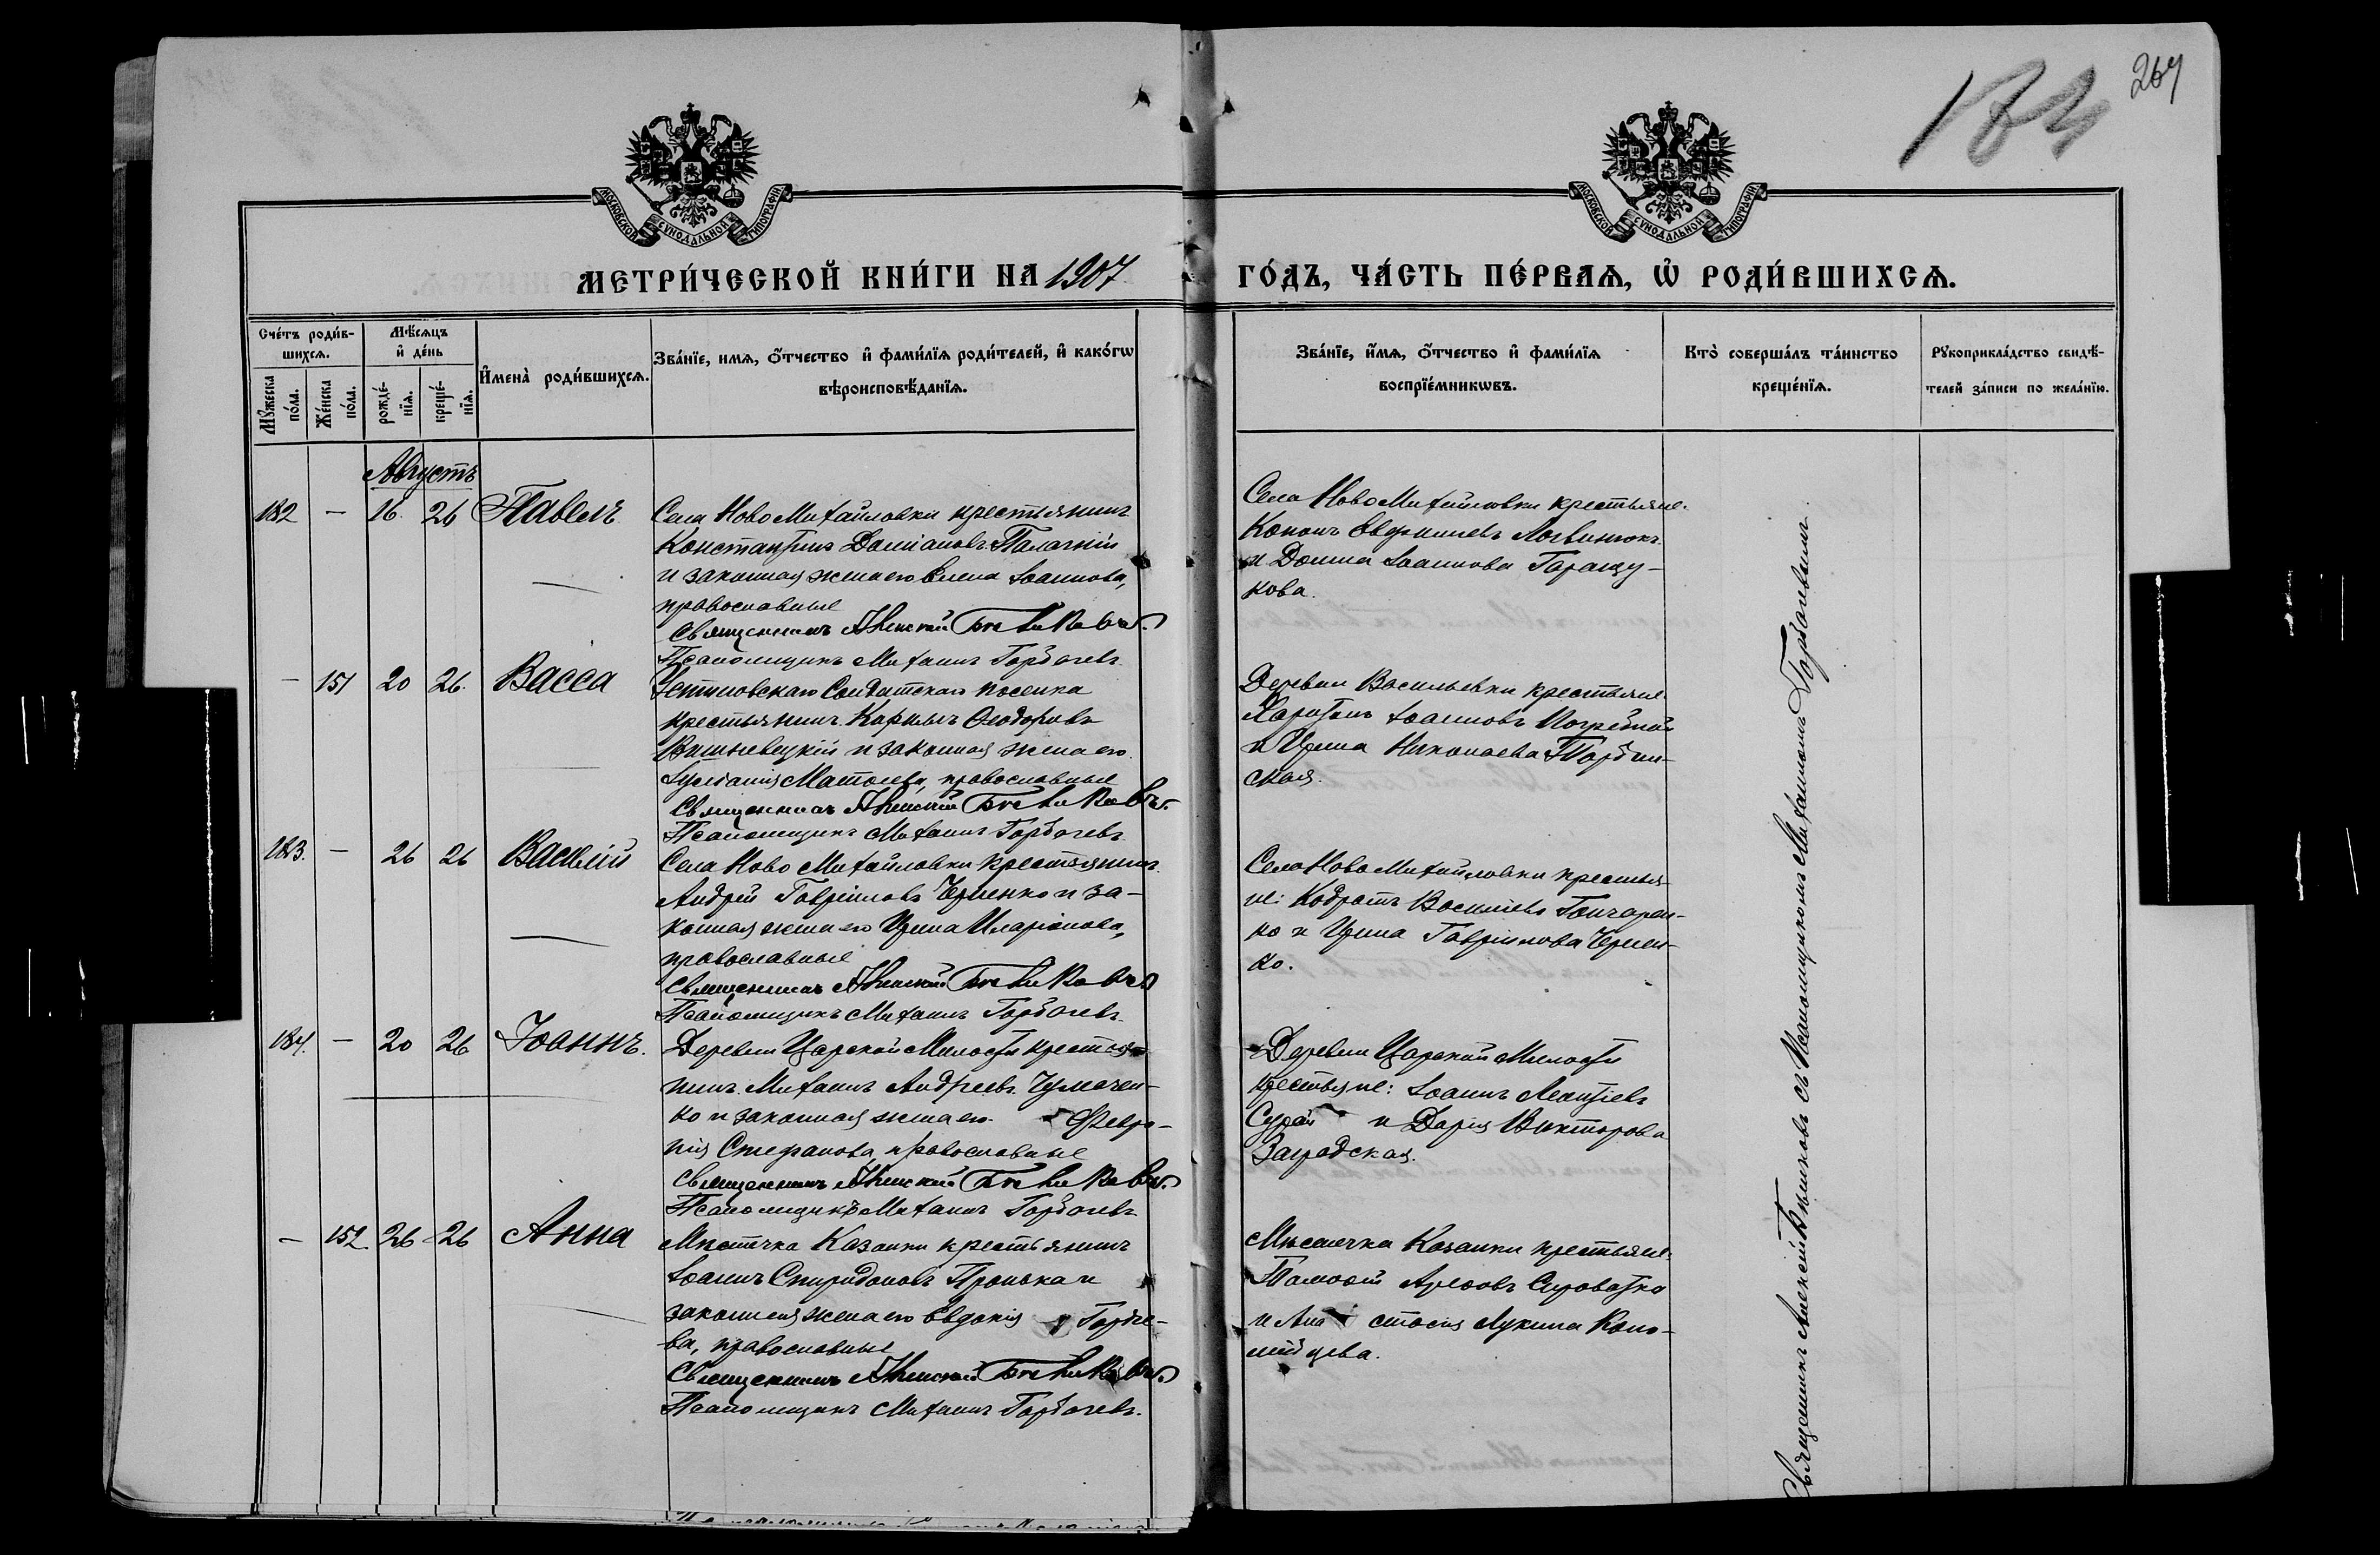 264
МОСКОВСКОЙ СѴНОДАЛЬНОЙ ТИПОГРАФІИ
МОСКОВСКОЙ СѴНОДАЛЬНОЙ ТИПОГРАФІИ
МЕТРИ́ЧЕСКОЙ КНИ́ГИ НА 1907
ГО́ДЪ, ЧА́СТЬ ПЕ́РВАѦ, Ѽ РОДИ́ВШИХСѦ.
Сче́тъ роди́в-
шихсѧ.
Мꙋ́жеска по́ла.
Же́нска по́ла.
Мѣ́сѧцъ
и҆ де́нь
рожде́-
нїѧ.
креще́-
нїѧ.
И҆мена̀ роди́вшихсѧ.
Зва́нїе, имѧ, ѻ҆́тчество и҆ фами́лїѧ роди́телей, и҆ како́гѡ
вѣроисповѣ́данїѧ.
Зва́нїе, и҆́мѧ, ѻ҆́тчество и҆ фами́лїѧ
воспрїе́мникѡвъ.
Кто̀ соверша́лъ та́инство
креще́нїѧ.
Рꙋкоприкла́дство свидѣ́-
телей за́писи по жела́нїю.
Августъ
182 — 16. 26 Павелъ
Села НовоМихайловки крестьянинъ
Константинъ Даміановъ
и законная жена его Елена Іоаннова,
православные
Священникъ Алексій
Псаломщикъ Михаилъ Горбачевъ
Села НовоМихайловки крестьяне:
Кононъ Логвинюкъ
и Домна Іоаннова Горащу-
кова.
— 151 20 26. Васса
Солдатскаго поселка
крестьянинъ Карпъ Ѳеодоровъ
Вишневецкій и законная жена его
Матѳеева, православные
Священникъ Алексій
Псаломщикъ Михаилъ Горбачевъ
Деревни Васильевки крестьяне
Харитонъ Іоанновъ Погребной
и Ирина Николаева
ская.
183. — 26 26 Василій
Села Ново Михайловки крестьянинъ
Андрей Гавріиловъ Черненко и за-
конная жена его Ирина Иларіонова,
православные
Священникъ Алексій
Псаломщикъ Михаилъ Горбачевъ
Села НовоМихайловки крестья-
не: Кодратъ Василіевъ Гончарен-
ко и Ирина Гавріилова Чернен-
ко.
184. — 20 26 Іоаннъ.
Деревни Царской Милости крестья-
нинъ Михаилъ Андреевъ Чумачен-
ко и законная жена его Февро-
нія Стефанова, православные
Священникъ Алексій
Псаломщикъ Михаилъ Горбачевъ
Деревни Царской Милости
крестьяне: Іоаннъ Леонтіевъ
Сурай и Дарія Викторова
Заградская.
— 152 26 26 Анна
Мѣстечка Казанки крестьянинъ
Іоаннъ Спиридоновъ Пронька и
законная жена его Евдокія Гордіе-
ва, православные
Священникъ Алексій
Псаломщикъ Михаилъ Горбачевъ.
Мѣстечка Казанки крестьяне:
Сыроватка
и Анастасія Лукина Коло-
мійцева.
Священникъ Алексій съ Псаломщикомъ Михаиломъ Горбачевымъ.